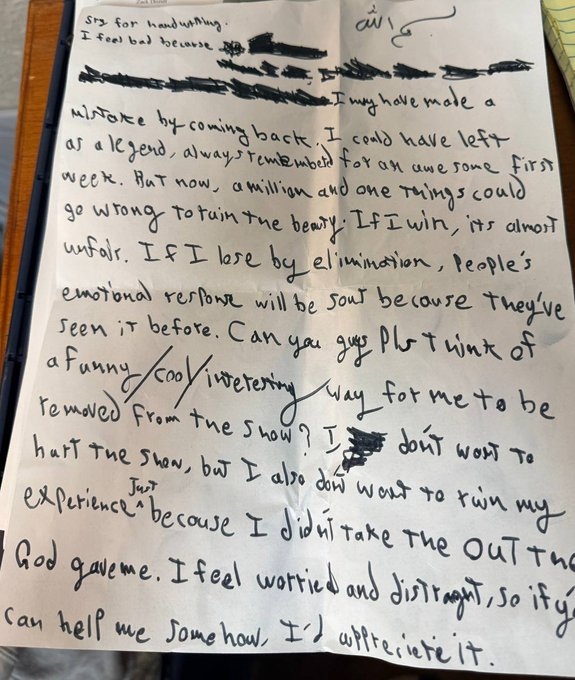 sry for handwriting.
I feel bad because
I may have made a
mistake by coming back. I could have left
as a legend, always rememberd for an awesome first
week. But now, a million and one things could
go wrong to ruin the beauty. If I win, its almost
unfair. If I lose by elimination, People's
emotional response will be sour because they've
seen it before. Can you guys Pls think of
a funny/cool/interesting way for me to be
removed from the show? I don't want to
hurt the show, but I also don't want to ruin my
experience Just because I didn't take the OUT that
God gave me. I feel worried and distraught, so if
can help me somehow, I'd appreciate it.